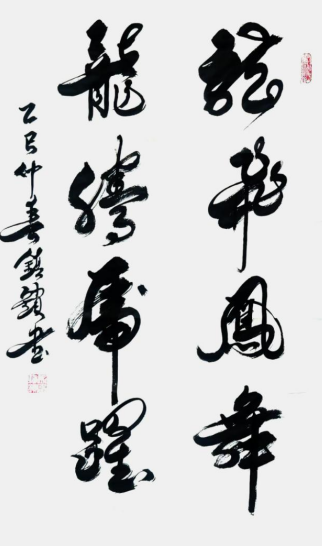 龍飛鳳舞
龍騰虎躍
乙巳仲春
書